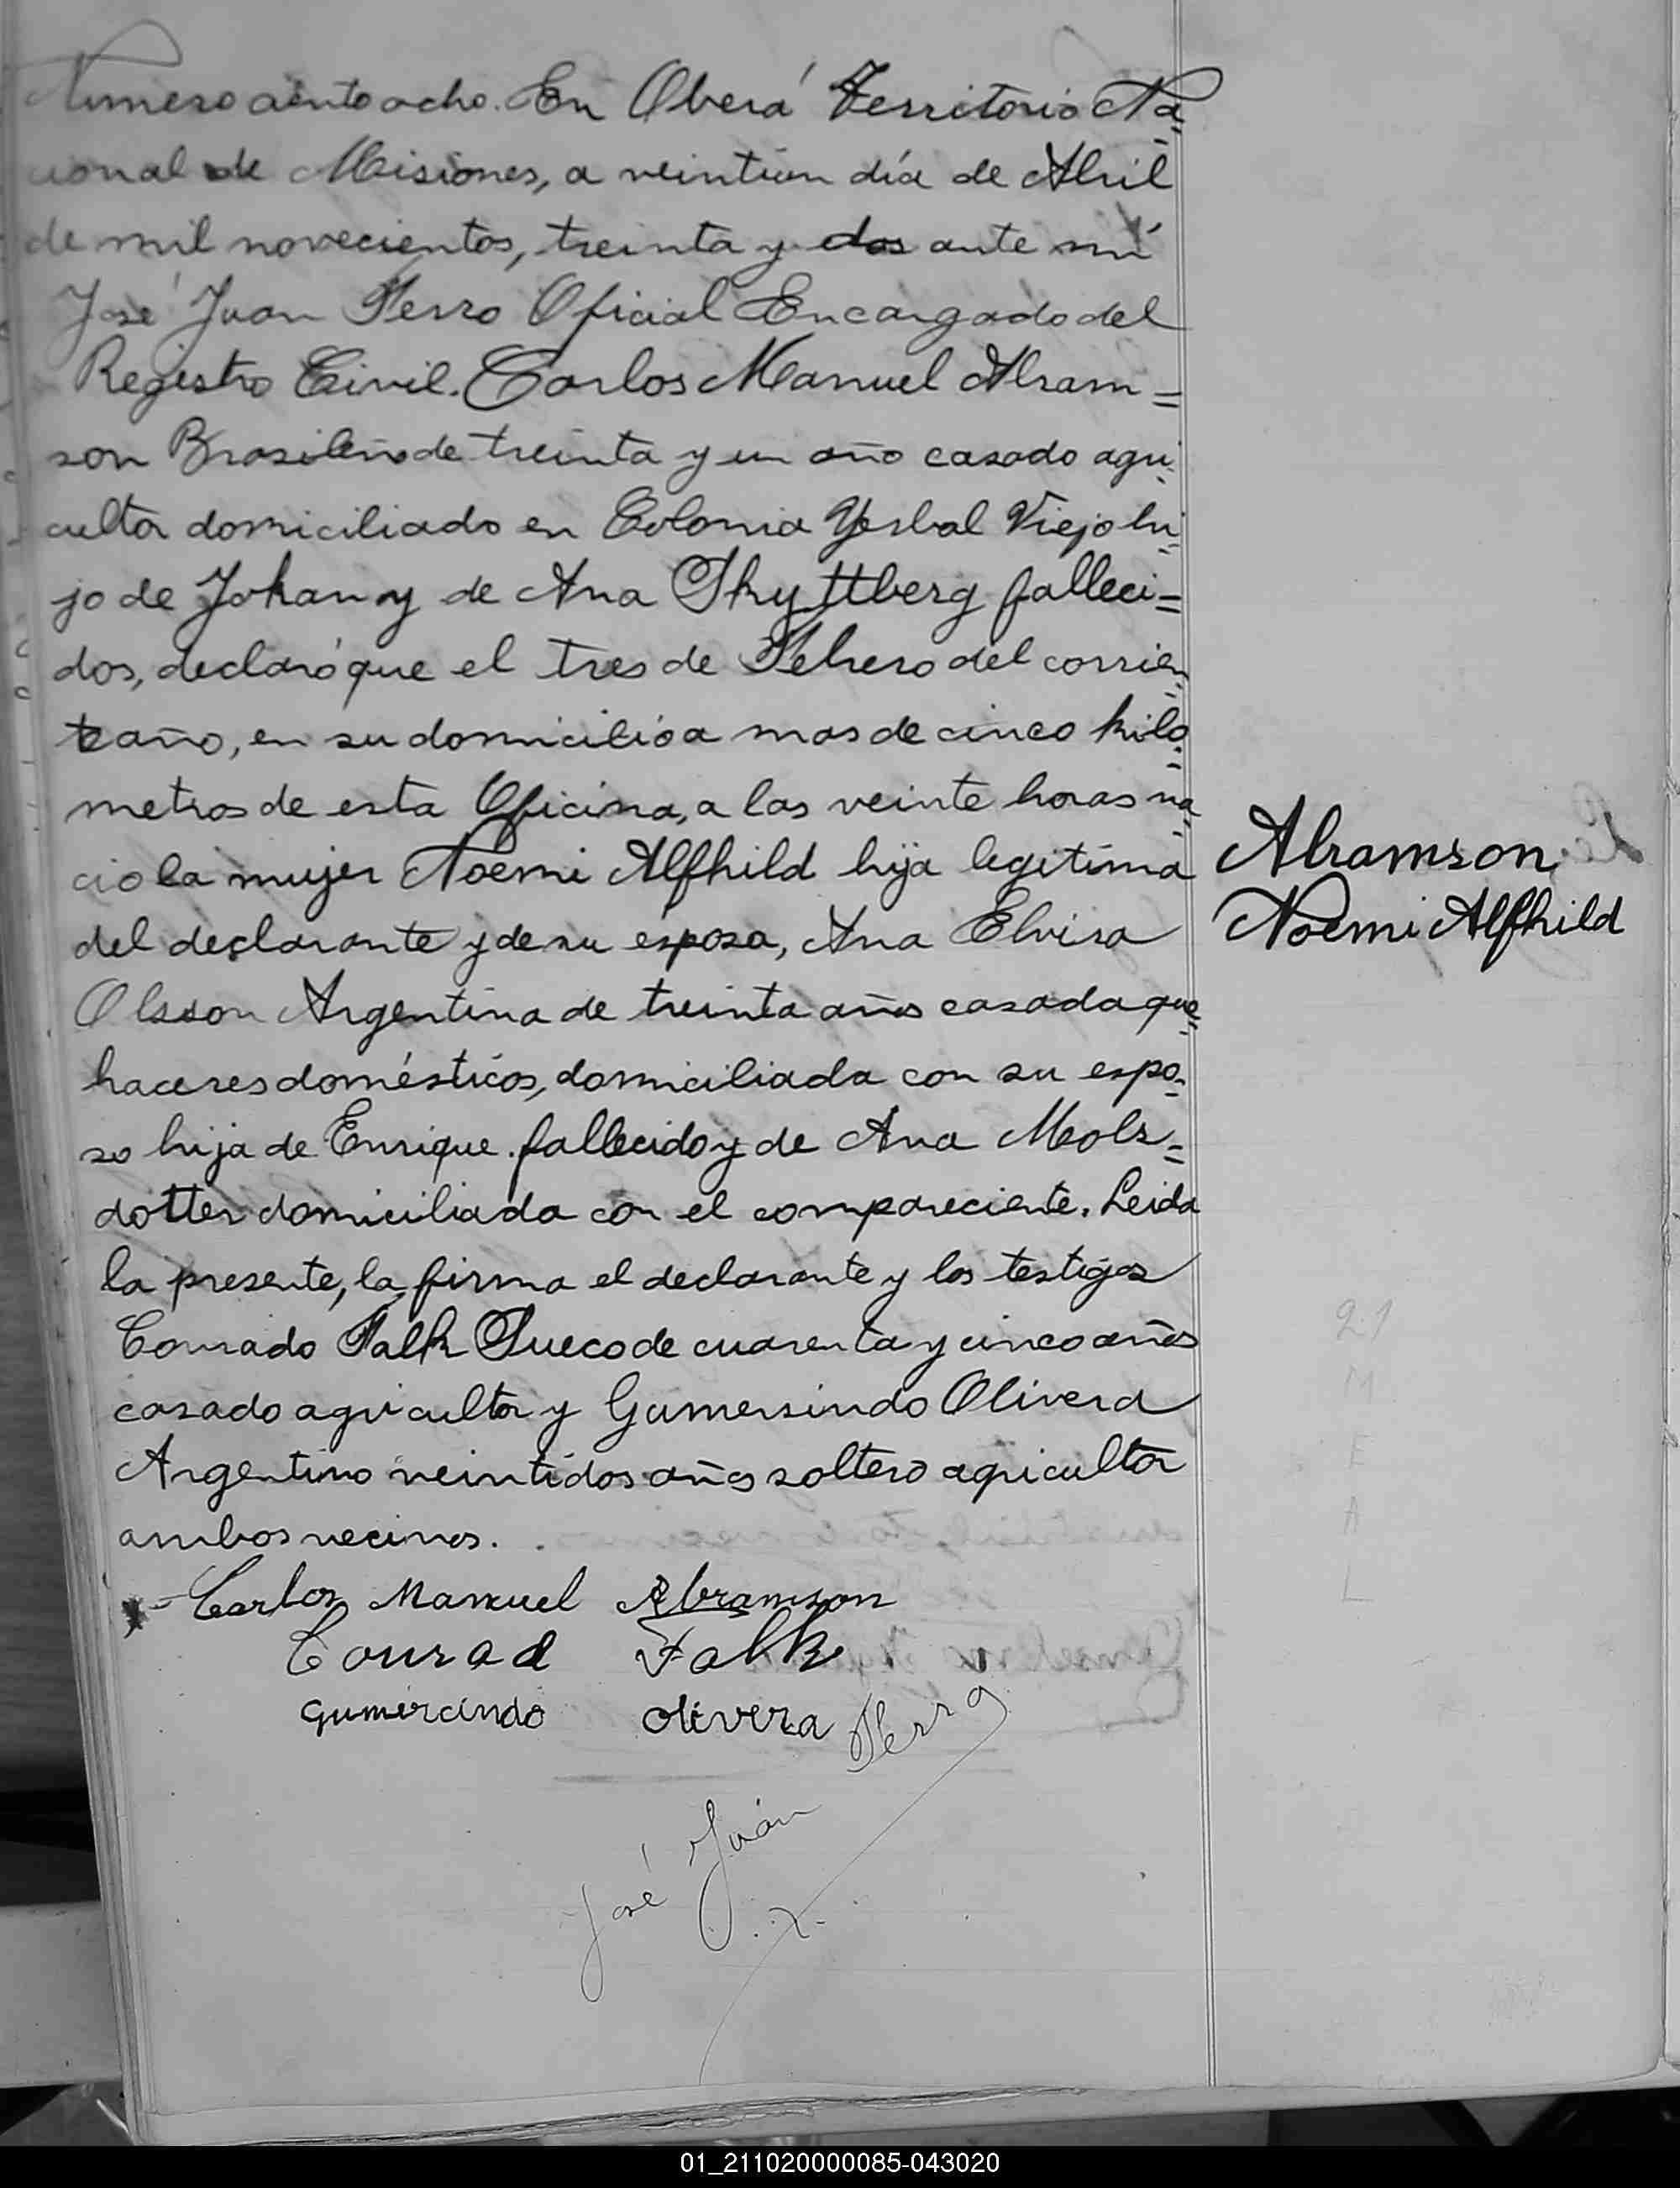 Numero ciento ocho. En Oberá Territorio Na=
cional de Misiones, a veintiun día de Abril
de mil novecientos, treinta y dos ante mí
José Juan Ferro Oficial Encargado del
Registro Civil. Carlos Manuel Abram=
son Brasileño de treinta y un año casado agri=
cultor domiciliado en Colonia Yerbal Viejo hi=
jo de Johan y de Ana Skyttberg falleci=
dos, declaró que el tres de Febrero del corrien=
te año, en su domicilio a mas de cinco kilo=
metros de esta Oficina, a las veinte horas na=
cio la mujer Noemi Alfhild hija legitima
del declarante y de su esposa, Ana Elvira
Olsson Argentina de treinta años casada que=
haceres domésticos, domiciliada con su espo=
so hija de Enrique fallecido y de Ana Mols=
dotter domiciliada con el compareciente. Leida
la presente, la firma el declarante y los testigos
Conrado Falk Sueco de cuarenta y cinco años
casado agricultor y Gumersindo Olivera
Argentino veintidos años soltero agricultor
ambos vecinos.
Carlos Manuel Abramson
Conrad Falk
Gumercindo Olivera
José Juan Ferro
Abramson
Noemi Alfhild
21
M
E
A
L
01_211020000085-043020